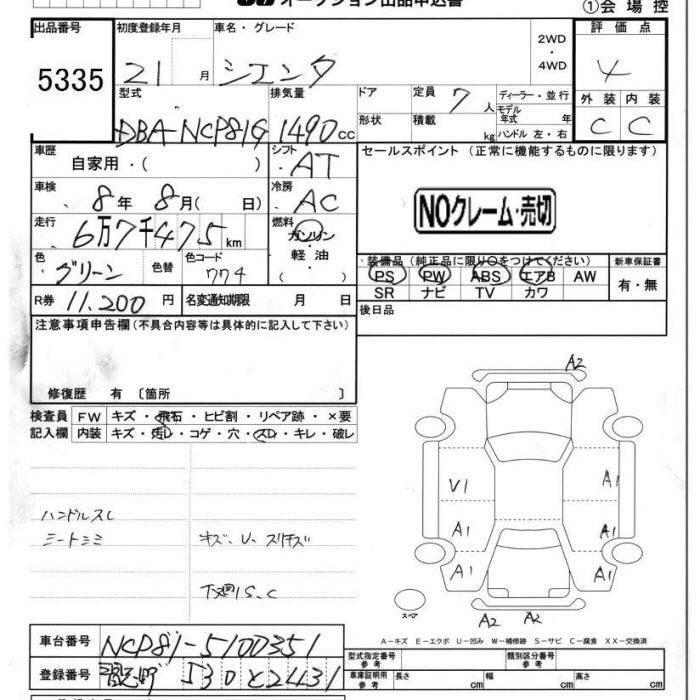 オークション出品申込書
①会場控
出品番号
5335
初度登録年月
21 月
車名・グレード
シエンタ
2WD
・
4WD
評価点
4
外装 内装
C C
型式
DBA-NCP81G
排気量
1490 cc
ドア
形状
定員 7 人
積載 kg
ディーラー・並行
モデル年式 年
ハンドル 左・右
車歴
自家用・( )
シフト
AT
セールスポイント (正常に機能するものに限ります)
NOクレーム・売切
車検
8年 8月( 日)
冷房
AC
走行
6万7千475 km
燃料
ガソリン
・
軽油
( )
色
グリーン
色替
色コード
774
装備品 (純正品に限り○をつけてください)
PS PW ABS エアB AW
SR ナビ TV カワ
新車保証書
有・無
R券 11,200 円
名変通知期限 月 日
後日品
注意事項申告欄 (不具合内容等は具体的に記入して下さい)
修復歴 有 〔箇所 〕
検査員
記入欄
FW キズ・飛石・ヒビ割・リペア跡・×要
内装 キズ・汚レ・コゲ・穴・スレ・キレ・破レ
ハンドルスレ
キズ、U、スリキズ
下廻りS、C
A2
V1
A1
A1
A1
A1
A1
A2
A2
スペア
A-キズ E-エクボ U-凹み W-補修跡 S-サビ C-腐食 XX-交換済
車台番号
NCP81-5100351
登録番号
530 と 2431
型式指定番号
参考
類別区分番号
参考
車庫証明用
参考
長さ cm
幅 cm
高さ cm